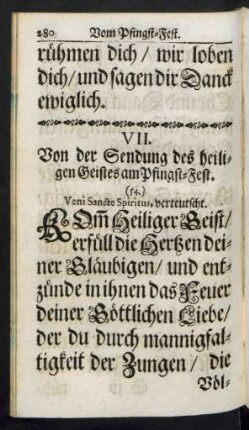 280 Vom Pfingst-Fest.
rühmen dich / wir loben
dich / und sagen dir Danck
ewiglich.
VII.
Von der Sendung des heili-
gen Geistes am Pfingst-Fest.
(54.)
Veni Sancte Spiritus, verteutscht.
KOm̃ Heiliger Geist /
erfüll die Hertzen dei-
ner Gläubigen / und ent-
zünde in ihnen das Feuer
deiner Göttlichen Liebe /
der du durch mannigfal-
tigkeit der Zungen / die
Völ-